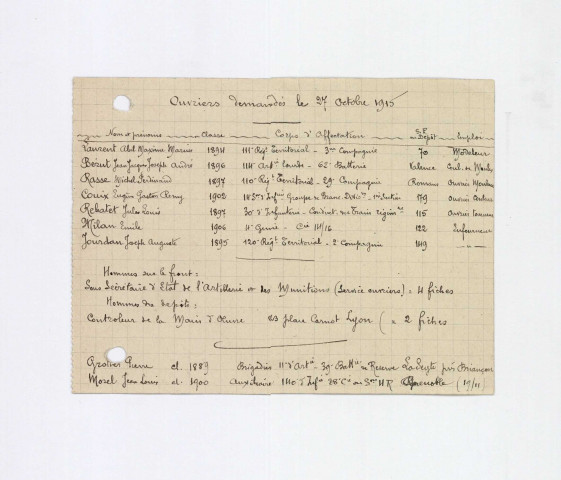 Ouvriers demandés le 27 octobre 1915
Noms et prénoms Classe Corps d'Affectation S.P. Dépôt Emploi
Laurent Abel Maxime Marius 1894 111e Régt Territorial - 3me Compagnie 70 Modeleur
Bérut Jean Joseph André 1896 114e Arte lourde - 62e Batterie Valence
Rasse Michel Ferdinand 1897 110e Régt Territorial - 29e Compagnie Romans Ouvrier
Couix Eugène Gaston Rémy 1902 Groupe de Branc 179 Ouvrier
Rebatet Jules Louis 1897 30e d'Infanterie - Conduct. 115 Ouvrier
Milan Emile 1906 4e Genie - Cie 14/16 122 Enfourneur
Jourdan Joseph Auguste 1895 120e Régt Territorial - 2e Compagnie 149 -"-
Hommes sur le front :
Sous Secrétaire d'Etat de l'Artillerie et des Munitions (Service ouvriers) = 4 fiches
Hommes des dépôts :
Controleur de la Main d'Œuvre 23 place Carnot Lyon ( = 2 fiches
Pierre cl. 1889 Brigadier 11e d'Artie - 39e Battie de Réserve près Briançon
Morel Jean Louis cl. 1900 Auxiliaire 140e d'Infie 28e Cie Grenoble (19/11)